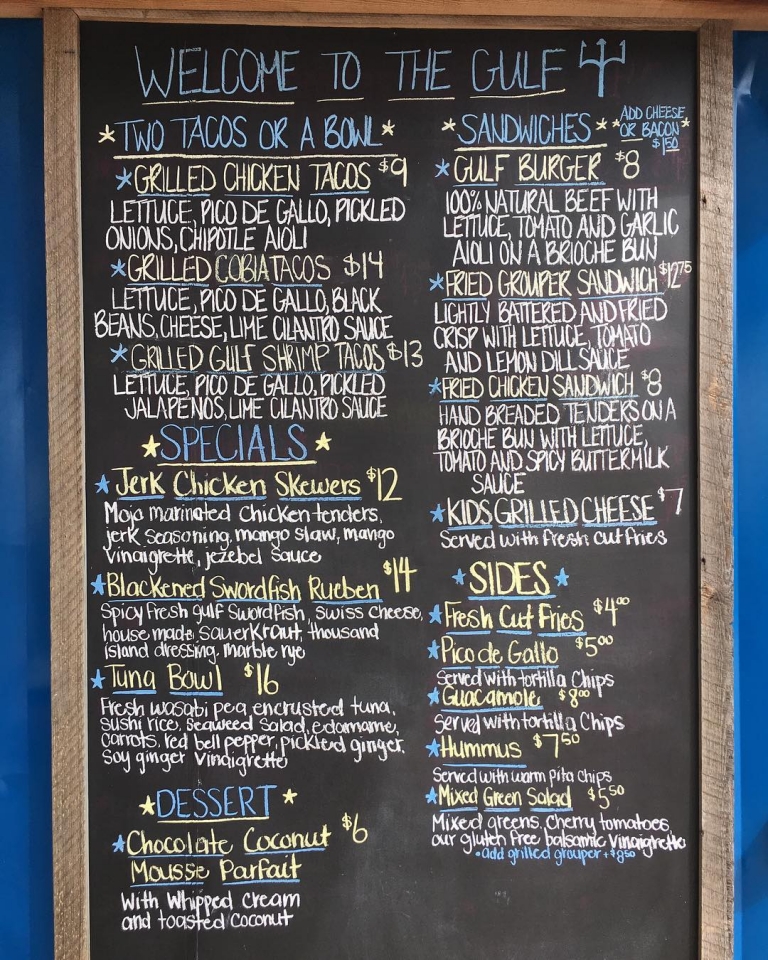 WELCOME TO THE GULF
*TWO TACOS OR A BOWL*
*GRILLED CHICKEN TACOS $9
LETTUCE, PICO DE GALLO, PICKLED
ONIONS, CHIPOTLE AIOLI
*GRILLED COBIA TACOS $14
LETTUCE, PICO DE GALLO, BLACK
BEANS, CHEESE, LIME CILANTRO SAUCE
*GRILLED GULF SHRIMP TACOS $13
LETTUCE, PICO DE GALLO, PICKLED
JALAPEÑOS, LIME CILANTRO SAUCE
*SPECIALS*
*Jerk Chicken Skewers $12
Mojo marinated chicken tenders,
jerk seasoning, mango slaw, mango
vinaigrette, jezebel sauce
*Blackened Swordfish Rueben $14
Spicy fresh gulf swordfish, swiss cheese,
house made sauerkraut, thousand
island dressing, marble rye
*Tuna Bowl $16
Fresh wasabi pea encrusted tuna,
sushi rice, seaweed salad, edamame,
carrots, red bell pepper, pickled ginger,
soy ginger vinaigrette
*DESSERT*
*Chocolate Coconut $6
Mousse Parfait
With Whipped cream
and toasted coconut
*SANDWICHES*
ADD CHEESE
*OR BACON*
$1.50
*GULF BURGER $8
100% NATURAL BEEF WITH
LETTUCE, TOMATO AND GARLIC
AIOLI ON A BRIOCHE BUN
*FRIED GROUPER SANDWICH $12.75
LIGHTLY BATTERED AND FRIED
CRISP WITH LETTUCE, TOMATO
AND LEMON DILL SAUCE
*FRIED CHICKEN SANDWICH $8
HAND BREADED TENDERS ON A
BRIOCHE BUN WITH LETTUCE,
TOMATO AND SPICY BUTTERMILK
SAUCE
*KIDS GRILLED CHEESE $7
Served with fresh cut fries
*SIDES*
*Fresh Cut Fries $4.00
*Pico de Gallo $5.00
Served with tortilla Chips
*Guacamole $8.00
Served with tortilla Chips
*Hummus $7.50
Served with warm pita chips
*Mixed Green Salad $5.50
Mixed greens, cherry tomatoes,
our gluten free balsamic vinaigrette
*add grilled grouper +$8.50